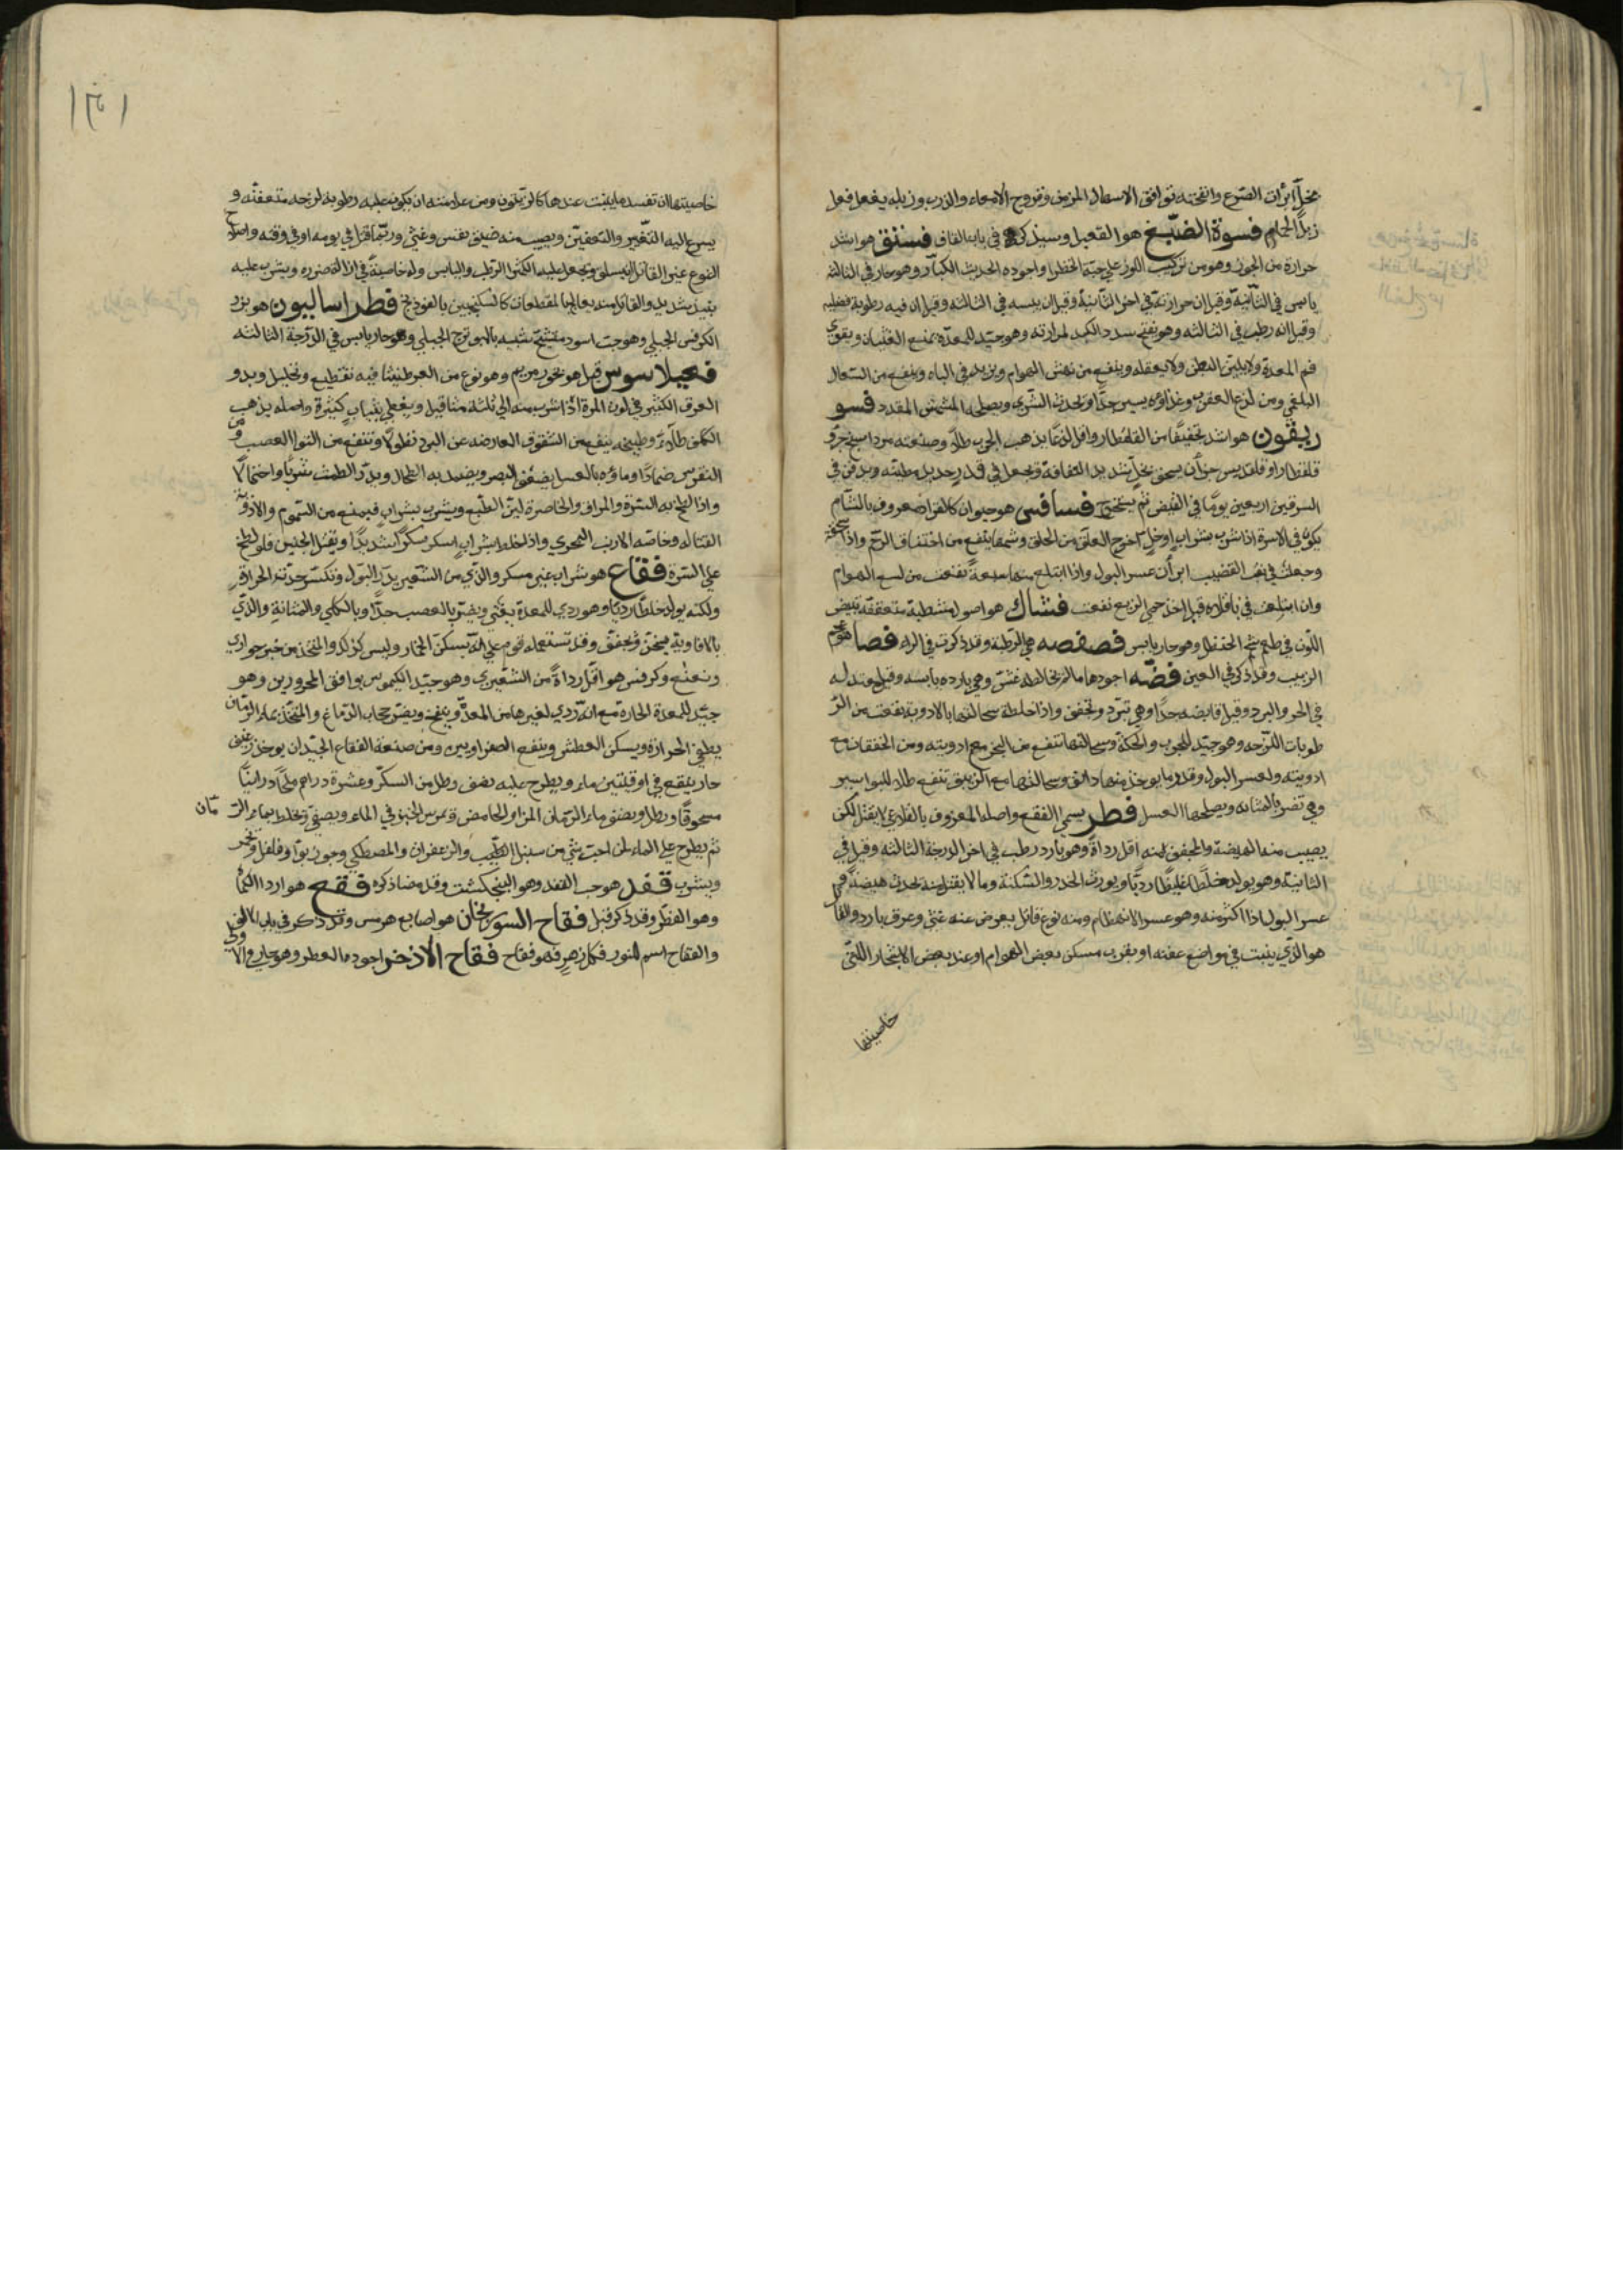 بخل أبرأت الصرع وانفحته توافق الاسهال المزمن وقروح الامعاء والذرب وزبله يفعل فعل
زبل الحمام فسوة الضبع هو القعبل وسيذكر في باب القاف فستق هو اشد
حرارة من الجوز وهو من تركيب اللوز على حبة الخضرا واجوده الحديث الكبار وهو حار في الثالثة
يابس في الثانية وقيل ان حرارته في اخر الثانية وقيل ان يبسه في الثالثة وقيل ان فيه رطوبة فضلية
وقيل انه رطب في الثالثة وهو يفتح سدد الكبد لمرارته وهو جيد للمعدة يمنع الغثيان ويقوي
فم المعدة ولا يلين البطن ولا يعقله وينفع من نهش الهوام ويزيد في الباه وينفع من السعال
البلغمي ومن لدغ العقرب وغذاؤه يسير جدا ويحدث الشرى ويصلحه المشمش المقدد فسو
ريقون هو اشد تجفيفا من القلقطار واقل لذعا يذهب الجرب طلاء وصنعته مرداسنج جزو
قلقطار او قلقديس جزان يسحق بخل شديد الثقافة ويجعل في قدر جديد مطينة ويدفن في
السرقين اربعين يوما في القيظ ثم يستخرج فسافس هو حيوان كالقراد معروف بالشام
يكون في الاسرة اذا شرب بشراب او خل اخرج العلق من الحلق وشمها ينفع من اختناق الرحم واذا سحقت
وجعلت في ثقب القضيب ابرأن عسر البول واذا ابتلع منها سبعة نفعت من لسع الهوام
وان ابتلعت في باقلاه قبل اخذ حمى الربع نفعت فشاك هو اصول متشظية متعققة تبيض
اللون في طعم شحم الحنظل وهو حار يابس فصفصه هي الرطبة وقد ذكرت في الراء فصا هو عجم
الزبيب وقد ذكر في العين فضّه اجودها ما لم يخالطه غش وهي باردة يابسة وقيل معتدله
في الحر والبرد وقيل قابضه جدا وهي تبرد وتجفف واذا خلطت سحالتها بالادوية نفعت من الر
طوبات اللزجه وهو جيد للجرب والحكة وسحالتها تنفع من البخر مع ادويته ومن الخفقان مع
ادويته ولعسر البول وقدر ما يوخذ منها دانق وسحالتها مع الزيبق تنفع طلاء للبواسير
وهي تضر بالمثانه ويصلحها العسل فطر يسمى الفقع واصله المعروف بالقلاع لا يقتل لكن
يصيب منه الهيضة والمجفف منه اقل رداة وهو بارد رطب في اخر الدرجة الثالثة وقيل في
الثانية وهو يولد خلطا غليظا رديا ويورث الخدر والسكتة وما لا يقتل منه يحدث هيضة و
عسر البول اذا اكثر منه وهو عسر الانهضام ومنه نوع قاتل يعرض عنه غشي وعرق بارد والقا
هو الذي ينبت في مواضع عفنه او بقرب مسكن بعض الهوام او عند بعض الاشجار اللتي
خاصيتها
خاصيتها ان تفسد ما ينبت عندها كالزيتون ومن علامته ان يكون عليه رطوبة لزجه متعفنه و
يسرع اليه التغيير والتعفين ويصيب منه ضيق نفس وغشي وربما قتل في يومه او في وقته واصلاح
النوع غير القاتل ان يسلق ويجعل عليه الكمثرى الرطب واليابس وله خاصية في ازالة ضرره ويشرب عليه
نبيذ شديد والقاتل منه يعالج بالمقطعات كالسكنجبين بالفودنج فطراساليون هو بزر
الكرفس الجبلي وهو حب اسود مفتح شبيه بالبوترج الجبلي وهو حار يابس في الدرجة الثالثة
فجيلاسوس قيل هو بخور مريم وهو نوع من العرطنيثا فيه تقطيع وتحليل ويدر
العرق الكثير في لون المرة اذا شرب منه الى ثلثة مثاقيل ويغطى بثياب كثيرة واصله يذهب
الكلف طلاء وطبيخه ينفع من الشقوق العارضه عن البرد نطولا وتنفع من التوا العصب ومن
النقرس ضمادا وماؤه بالعسل يضعف البصر ويضمد به الطحال ويدر الطمث شربا واحتمالا
واذا لطخ به السرة والمراق والخاصرة لين الطبع ويشرب بشراب فيمنع من السموم والادوية
القتاله وخاصة الارنب البحري واذا خلط بشراب اسكر سكرا شديدا ويقتل الجنين ولو لطخ
على السرة فقاع هو شراب غير مسكر والذي من الشعير يدر البول وتكسر حدته الحرارة
ولكنه يولد خلطا رديا وهو ردي للمعدة يغثي ويضر بالعصب جدا وبالكلى والمثانة والذي
بالافاويه يسخن ويجفف وقد تستعمله قوم على انه يسكن الخمار وليس كذلك والمتخذ من خبز حواري
ونعنع وكرفس هو اقل رداة من الشعيري وهو جيد الكيموس يوافق المحرورين وهو
جيد للمعدة الحارة مع انه ردي لغيرها من المعد وينفخ ويضر حجاب الدماغ والمتخذ بماء الرمان
يطفي الحرارة ويسكن العطش وينفع الصفراويين ومن صنعة الفقاع الجيد ان يوخذ رغيف
حار ينقع في اوقيتين ماء ويطرح عليه نصف رطل من السكر وعشرة دراهم ملحا درانيا
مسحوقا ورطل ونصف ماء الرمان المز او الحامض ويمرس الخبز في الماء ويصفى ويخلط بماء الر مان
ثم يطرح على الماء لمن احب شي من سنبل الطيب والزعفران والمصطكي وجوز بوا وفلفل ويخمر
ويشرب فقد هو حب الفقد وهو البنجكشت وقد مضا ذكره فقع هو اردا الكمأ
وهو الفطر وقد ذكر قبل فقاح السورنجان هو اصابع هرمس وقد ذكر في باب الالف
والفقاح اسم للنور فكل زهر فهو فقاح فقاح الاذخر اجوده العطر وهو حار في الاولى